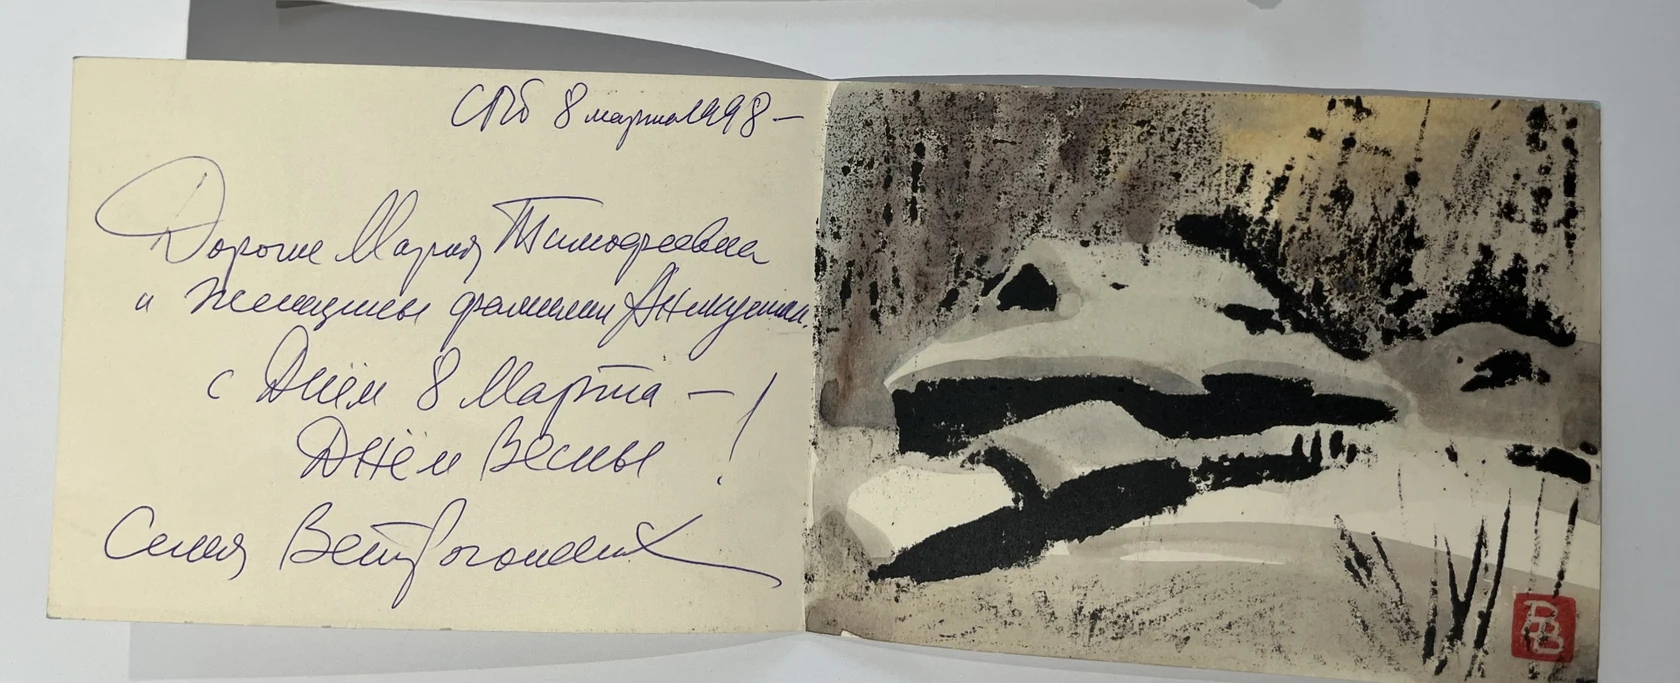 СПб 8 марта 1998 –
Дорогие Мария Тимофеевна
и женщины фамилии Аникушин.
с Днём 8 Марта – !
Днём Весны !
Семья Ветрогонских